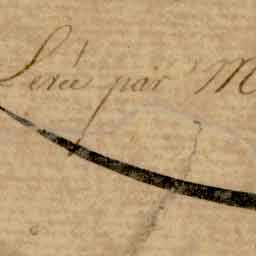 Levée par M